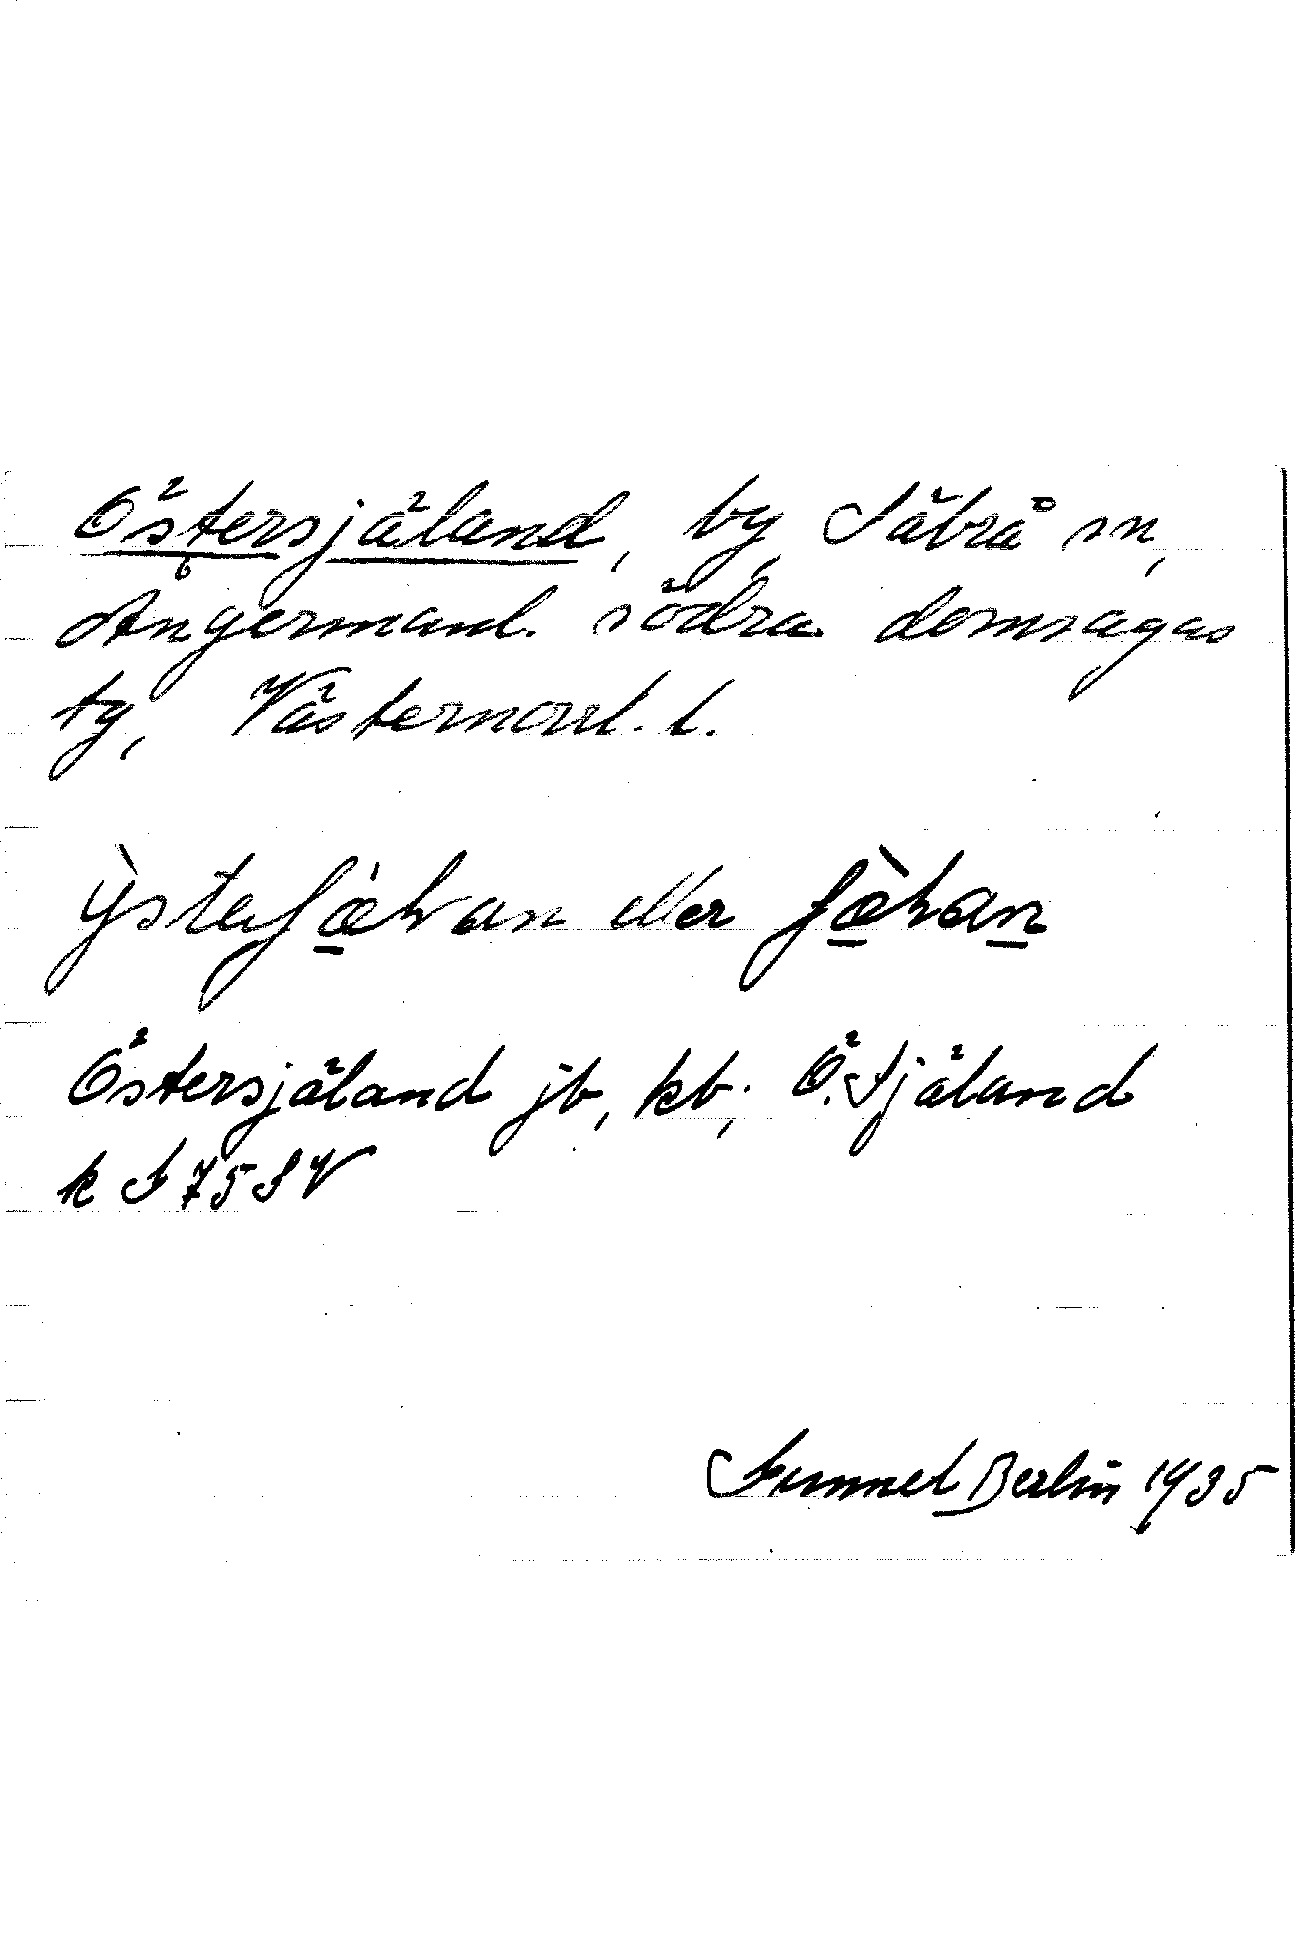 Östersjäland, by, Säbrå sn,
Ångermanl. södra domsagas
tg, Västernorrl. l.
ỳstaʃæ̀lan eller ʃæ̀lan
Östersjäland jb, kb; Ö. Själand
k S 75 SV
Gunnel Berlin 1935